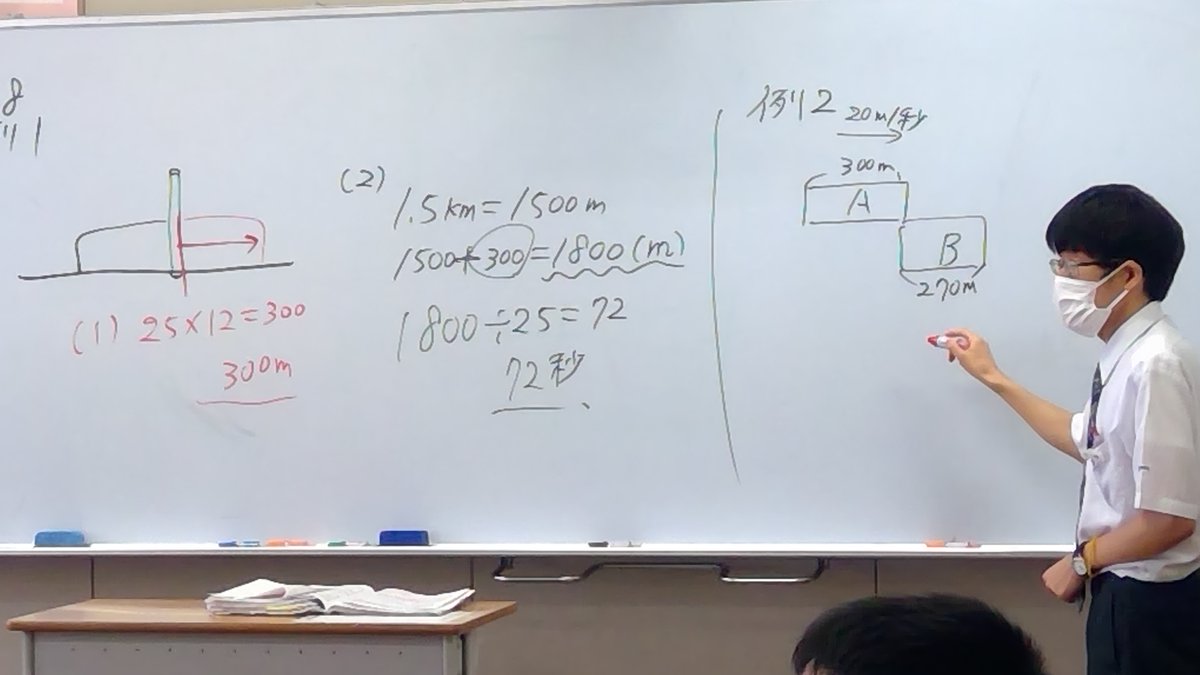 8
例1
(1) 25×12=300
300m
(2)
1.5km=1500m
1500+300=1800(m)
1800÷25=72
72秒
例2
20m/秒
300m
A
B
270m